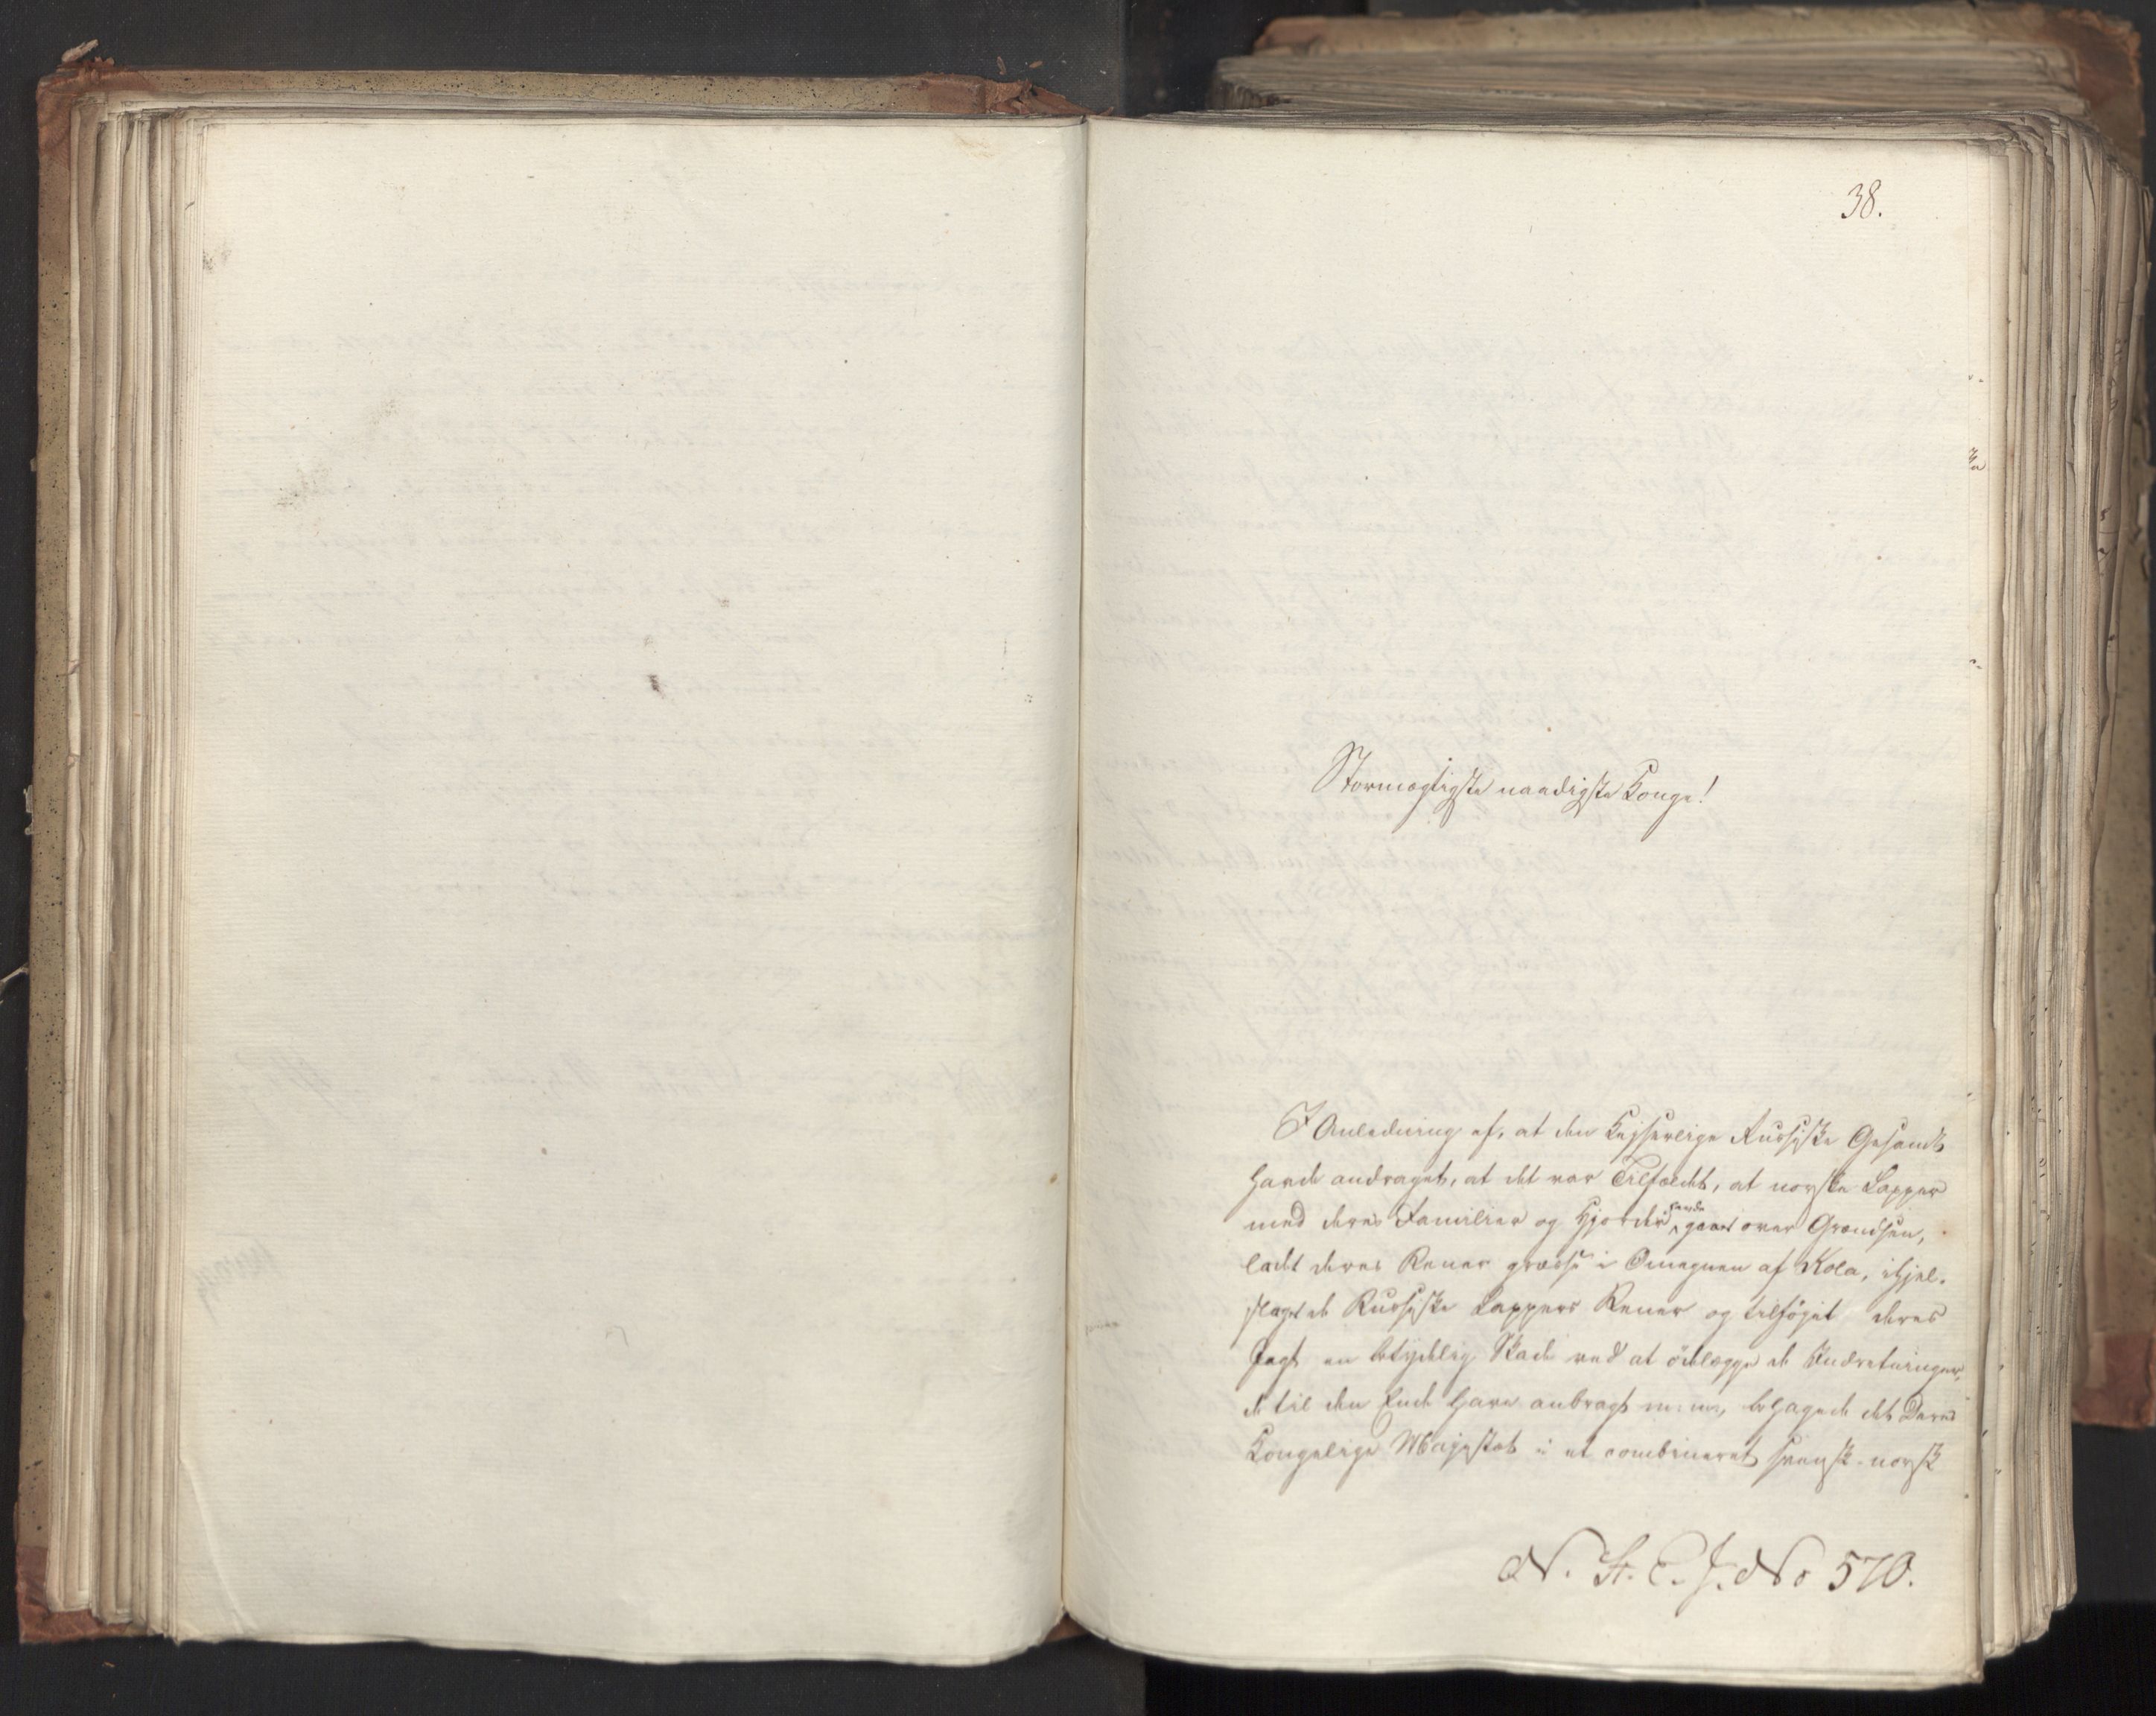 38.
Stormægtigste naadigste Konge!
I Anledning af, at den Kejserlige Russiske Gesandt
havde andraget, at det var Tilfældet, at norske Lapper
med deres Familier og Hjorder havde gaaet over Grændsen,
ladt deres Rener græsse i Omegnen af Kola, ihjel-
slaget de Russiske Lappers Rener og tilføjet deres
Jagt en betydelig Skade ved at ödelægge de Indretninger,
de til den Ende have anbragt m: m:, behagede det Deres
Kongelige Majestæt i et combineret svensk-norsk
N. St. E. J. No 570.